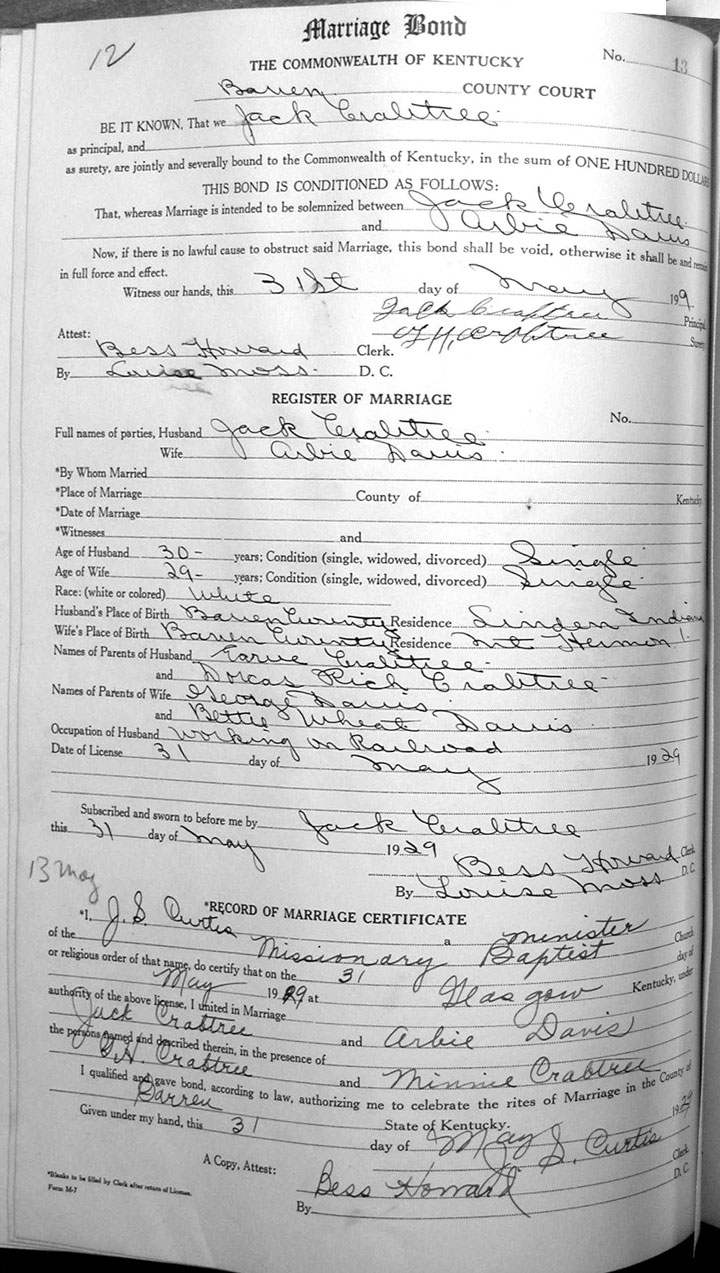 12
Marriage Bond
No. 13
THE COMMONWEALTH OF KENTUCKY
Barren COUNTY COURT
BE IT KNOWN, That we Jack Crabtree
as principal, and
as surety, are jointly and severally bound to the Commonwealth of Kentucky, in the sum of ONE HUNDRED DOLLARS
THIS BOND IS CONDITIONED AS FOLLOWS:
That, whereas Marriage is intended to be solemnized between Jack Crabtree
and Arbie Davis
Now, if there is no lawful cause to obstruct said Marriage, this bond shall be void, otherwise it shall be and remain
in full force and effect.
Witness our hands, this 31st day of May 19 9
Jack Crabtree Principal
Attest: H. Crabtree Surety
Bess Howard Clerk.
By Louise Moss D. C.
REGISTER OF MARRIAGE
No.
Full names of parties, Husband Jack Crabtree
Wife Arbie Davis
*By Whom Married
*Place of Marriage County of Kentucky
*Date of Marriage
*Witnesses and
Age of Husband 30- years; Condition (single, widowed, divorced) Single
Age of Wife 29- years; Condition (single, widowed, divorced) Single
Race: (white or colored) White
Husband's Place of Birth Barren County Residence Linden Indiana
Wife's Place of Birth Barren County Residence Mt Hermon
Names of Parents of Husband Crabtree
and Dorcas Rich Crabtree
Names of Parents of Wife George Davis
and Bettie Wheat Davis
Occupation of Husband Working on Railroad
Date of License 31 day of May 1929
Subscribed and sworn to before me by Jack Crabtree
this 31 day of May 1929
Bess Howard Clerk
13 May
By Louise Moss D. C.
*RECORD OF MARRIAGE CERTIFICATE
*I, J. S. Curtis a minister
of the Missionary Baptist Church
or religious order of that name, do certify that on the 31 day of
May 1929 at Glasgow Kentucky, under
authority of the above license, I united in Marriage
Jack Crabtree and Arbie Davis
the persons named and described therein, in the presence of
Crabtree and Minnie Crabtree
I qualified and gave bond, according to law, authorizing me to celebrate the rites of Marriage in the County of
Barren State of Kentucky.
Given under my hand, this 31 day of May 1929
J. S. Curtis
A Copy, Attest: Bess Howard Clerk
By D. C.
*Blanks to be filled by Clerk after return of License.
Form M-7